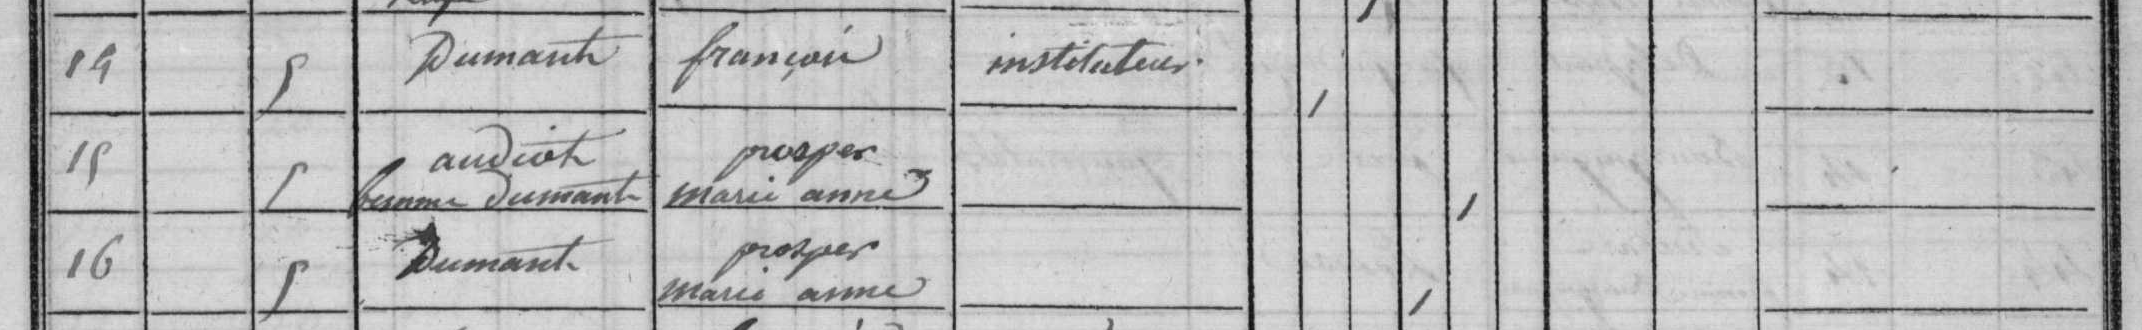 14 5 Dumant françois instituteur. 1
15 5 audiot prosper
femme Dumant marie anne 1
16 5 Dumant prosper
marie anne 1